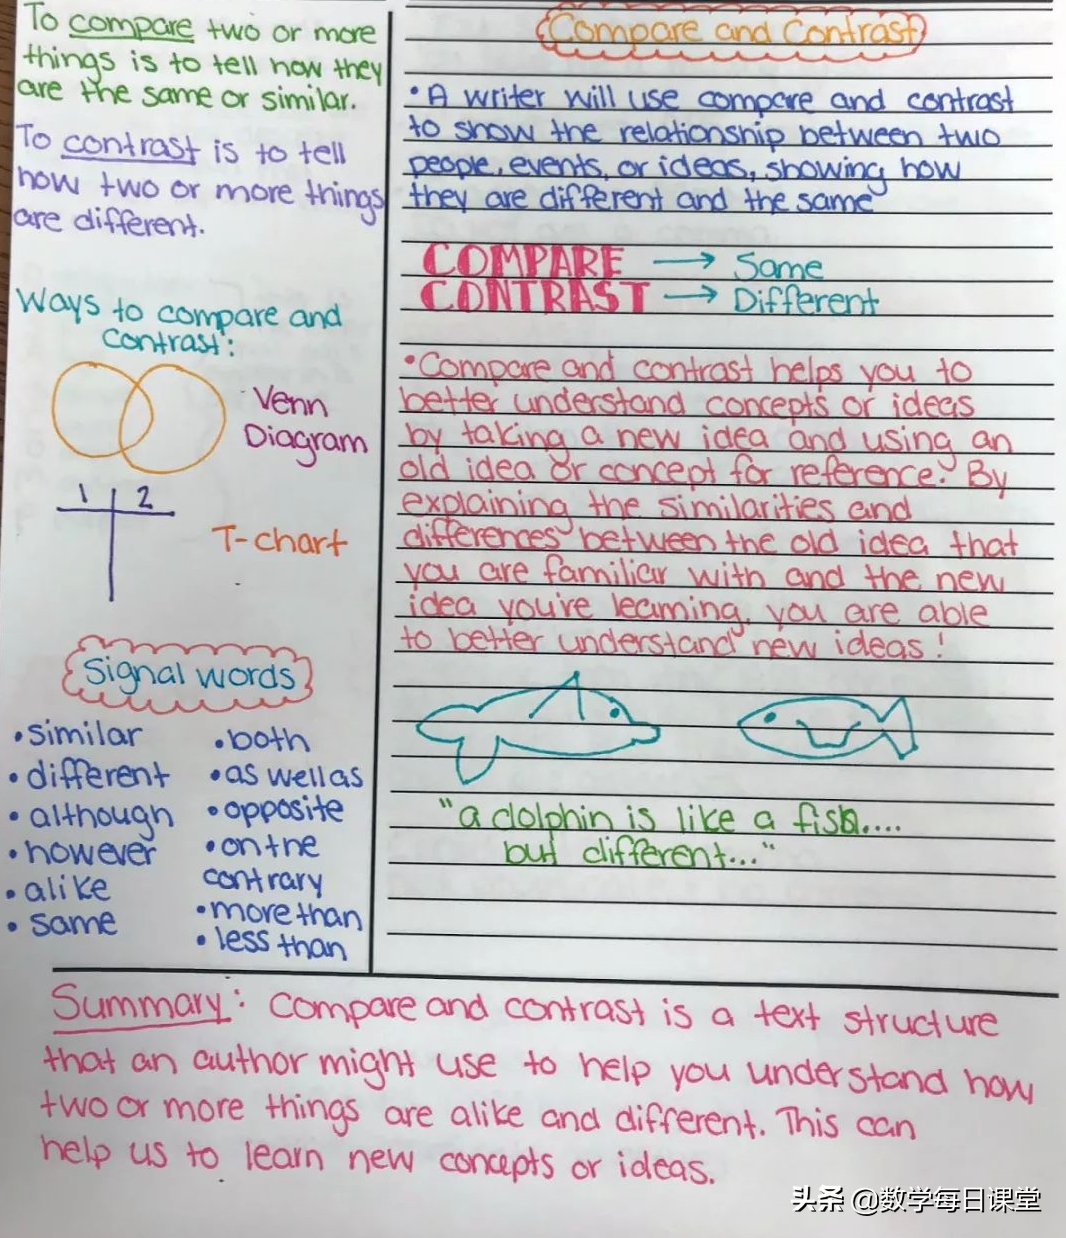 To compare two or more
things is to tell how they
are the same or similar.
To contrast is to tell
how two or more things
are different.
Ways to compare and
contrast:
Venn
Diagram
1 2
T-chart
Signal words
• similar
• different
• although
• however
• alike
• same
• both
• as well as
• opposite
• on the
contrary
• more than
• less than
Compare and Contrast
• A writer will use compare and contrast
to show the relationship between two
people, events, or ideas, showing how
they are different and the same
COMPARE → Same
CONTRAST → Different
• Compare and contrast helps you to
better understand concepts or ideas
by taking a new idea and using an
old idea or concept for reference. By
explaining the similarities and
differences between the old idea that
you are familiar with and the new
idea you're learning, you are able
to better understand new ideas!
"a dolphin is like a fish....
but different..."
Summary: Compare and contrast is a text structure
that an author might use to help you understand how
two or more things are alike and different. This can
help us to learn new concepts or ideas.
头条 @数学每日课堂